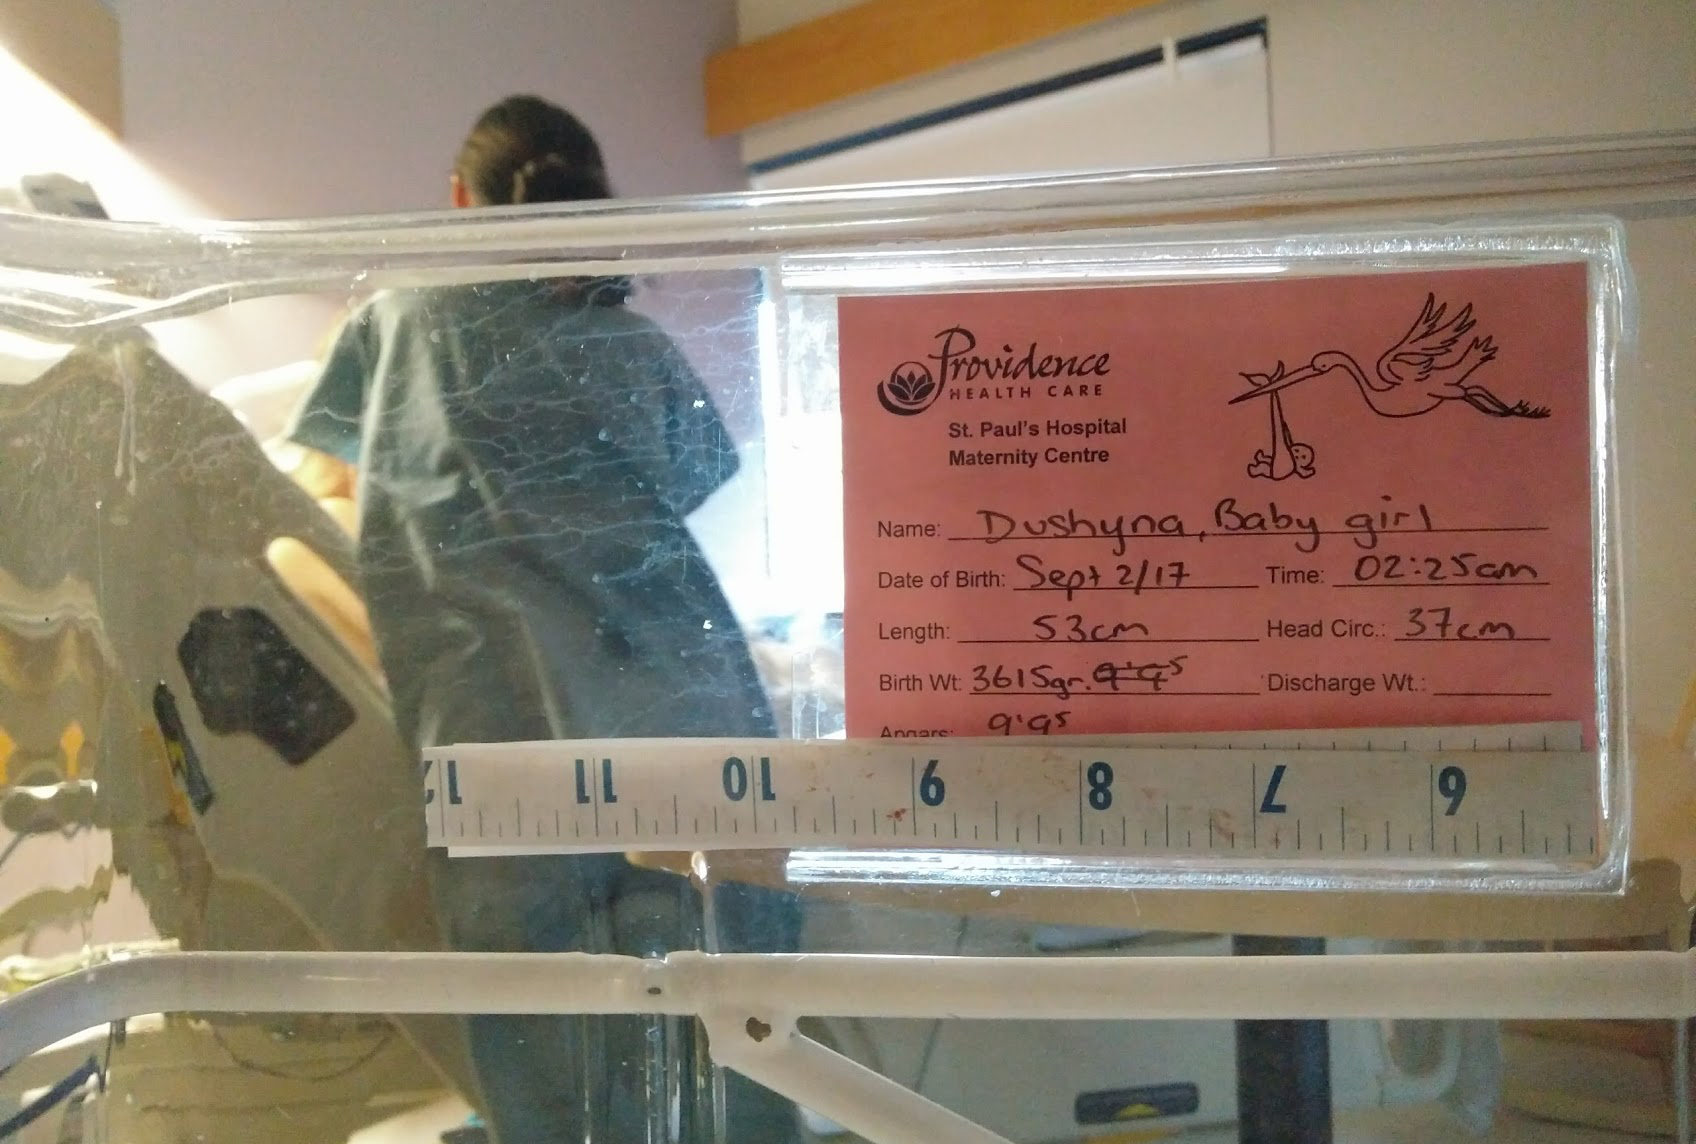 Providence
HEALTH CARE
St. Paul's Hospital
Maternity Centre
Name: Dushyna, Baby girl
Date of Birth: Sept 2/17 Time: 02:25am
Length: 53cm Head Circ.: 37cm
Birth Wt: 3615gr. Discharge Wt.:
Apgars: 9'95
12 11 10 9 8 7 6